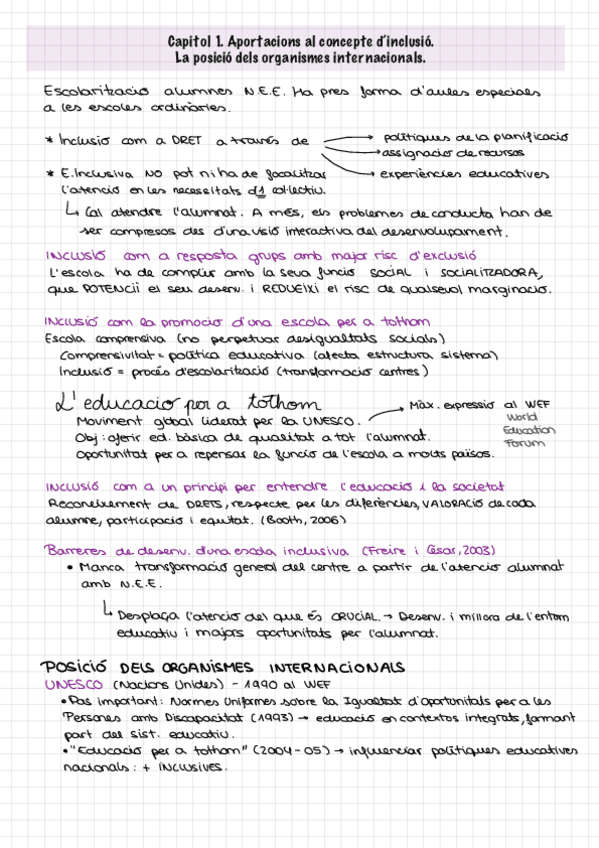 Capitol 1. Aportacions al concepte d'inclusió.
La posició dels organismes internacionals.
Escolarització alumnes N.E.E. Ha pres forma d'aules especials
a les escoles ordinàries.
* Inclusió com a DRET a través de → polítiques de la planificació
→ assignació de recursos
→ experiències educatives
* E.Inclusiva NO pot ni ha de focalitzar
l'atenció en les necessitats d'1 col·lectiu.
↳ Cal atendre l'alumnat. A més, els problemes de conducta han de
ser compresos des d'una visió interactiva del desenvolupament.
INCLUSIÓ com a resposta grups amb major risc d'exclusió
L'escola ha de complir amb la seva funció SOCIAL i SOCIALITZADORA,
que POTENCiï el seu desenv. i REDUEIXI el risc de qualsevol marginació.
INCLUSIÓ com la promoció d'una escola per a tothom
Escola comprensiva (no perpetuar desigualtats socials)
Comprensivitat = política educativa (afecta estructura sistema)
Inclusió = procés d'escolarització (transformació centres)
L'educació per a tothom → Màx. expressió al WEF
World
Education
Forum
Moviment global liderat per la UNESCO.
Obj: oferir ed. bàsica de qualitat a tot l'alumnat.
Oportunitat per a repensar la funció de l'escola a molts països.
INCLUSIÓ com a un principi per entendre l'educació i la societat
Reconeixement de DRETS, respecte per les diferències, VALORACIÓ de cada
alumne, participació i equitat. (Booth, 2006)
Barreres de desenv. d'una escola inclusiva (Freire i César, 2003)
• Manca transformació general del centre a partir de l'atenció alumnat
amb N.E.E.
↳ Desplaça l'atenció del que és CRUCIAL. → Desenv. i millora de l'entorn
educatiu i majors oportunitats per l'alumnat.
POSICIÓ DELS ORGANISMES INTERNACIONALS
UNESCO (Nacions Unides) - 1990 al WEF
• Pas important: Normes Uniformes sobre la Igualtat d'Oportunitats per a les
Persones amb Discapacitat (1993) → educació en contextos integrats, formant
part del sist. educatiu.
• "Educació per a tothom" (2004-05) → influenciar polítiques educatives
nacionals: + INCLUSIVES.